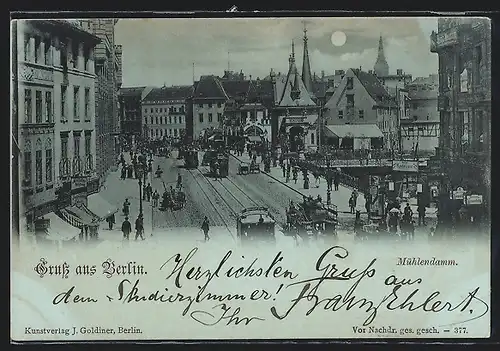 Mühlendamm.
Gruß aus Berlin.
Herzlichsten Gruß aus
dem Studierzimmer!
Ihr Franz Ehlert.
Kunstverlag J. Goldiner, Berlin.
Vor Nachdr. ges. gesch. — 377.